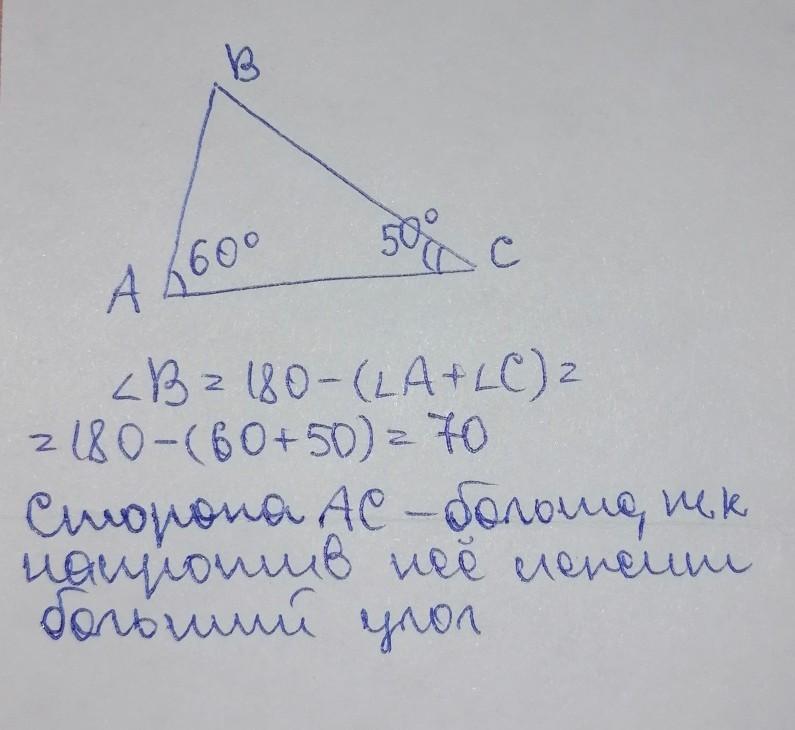 B
60°
50°
A
C
∠B = 180 - (∠A + ∠C) =
= 180 - (60 + 50) = 70
Сторона AC - больше, т.к
напротив неё лежит
больший угол